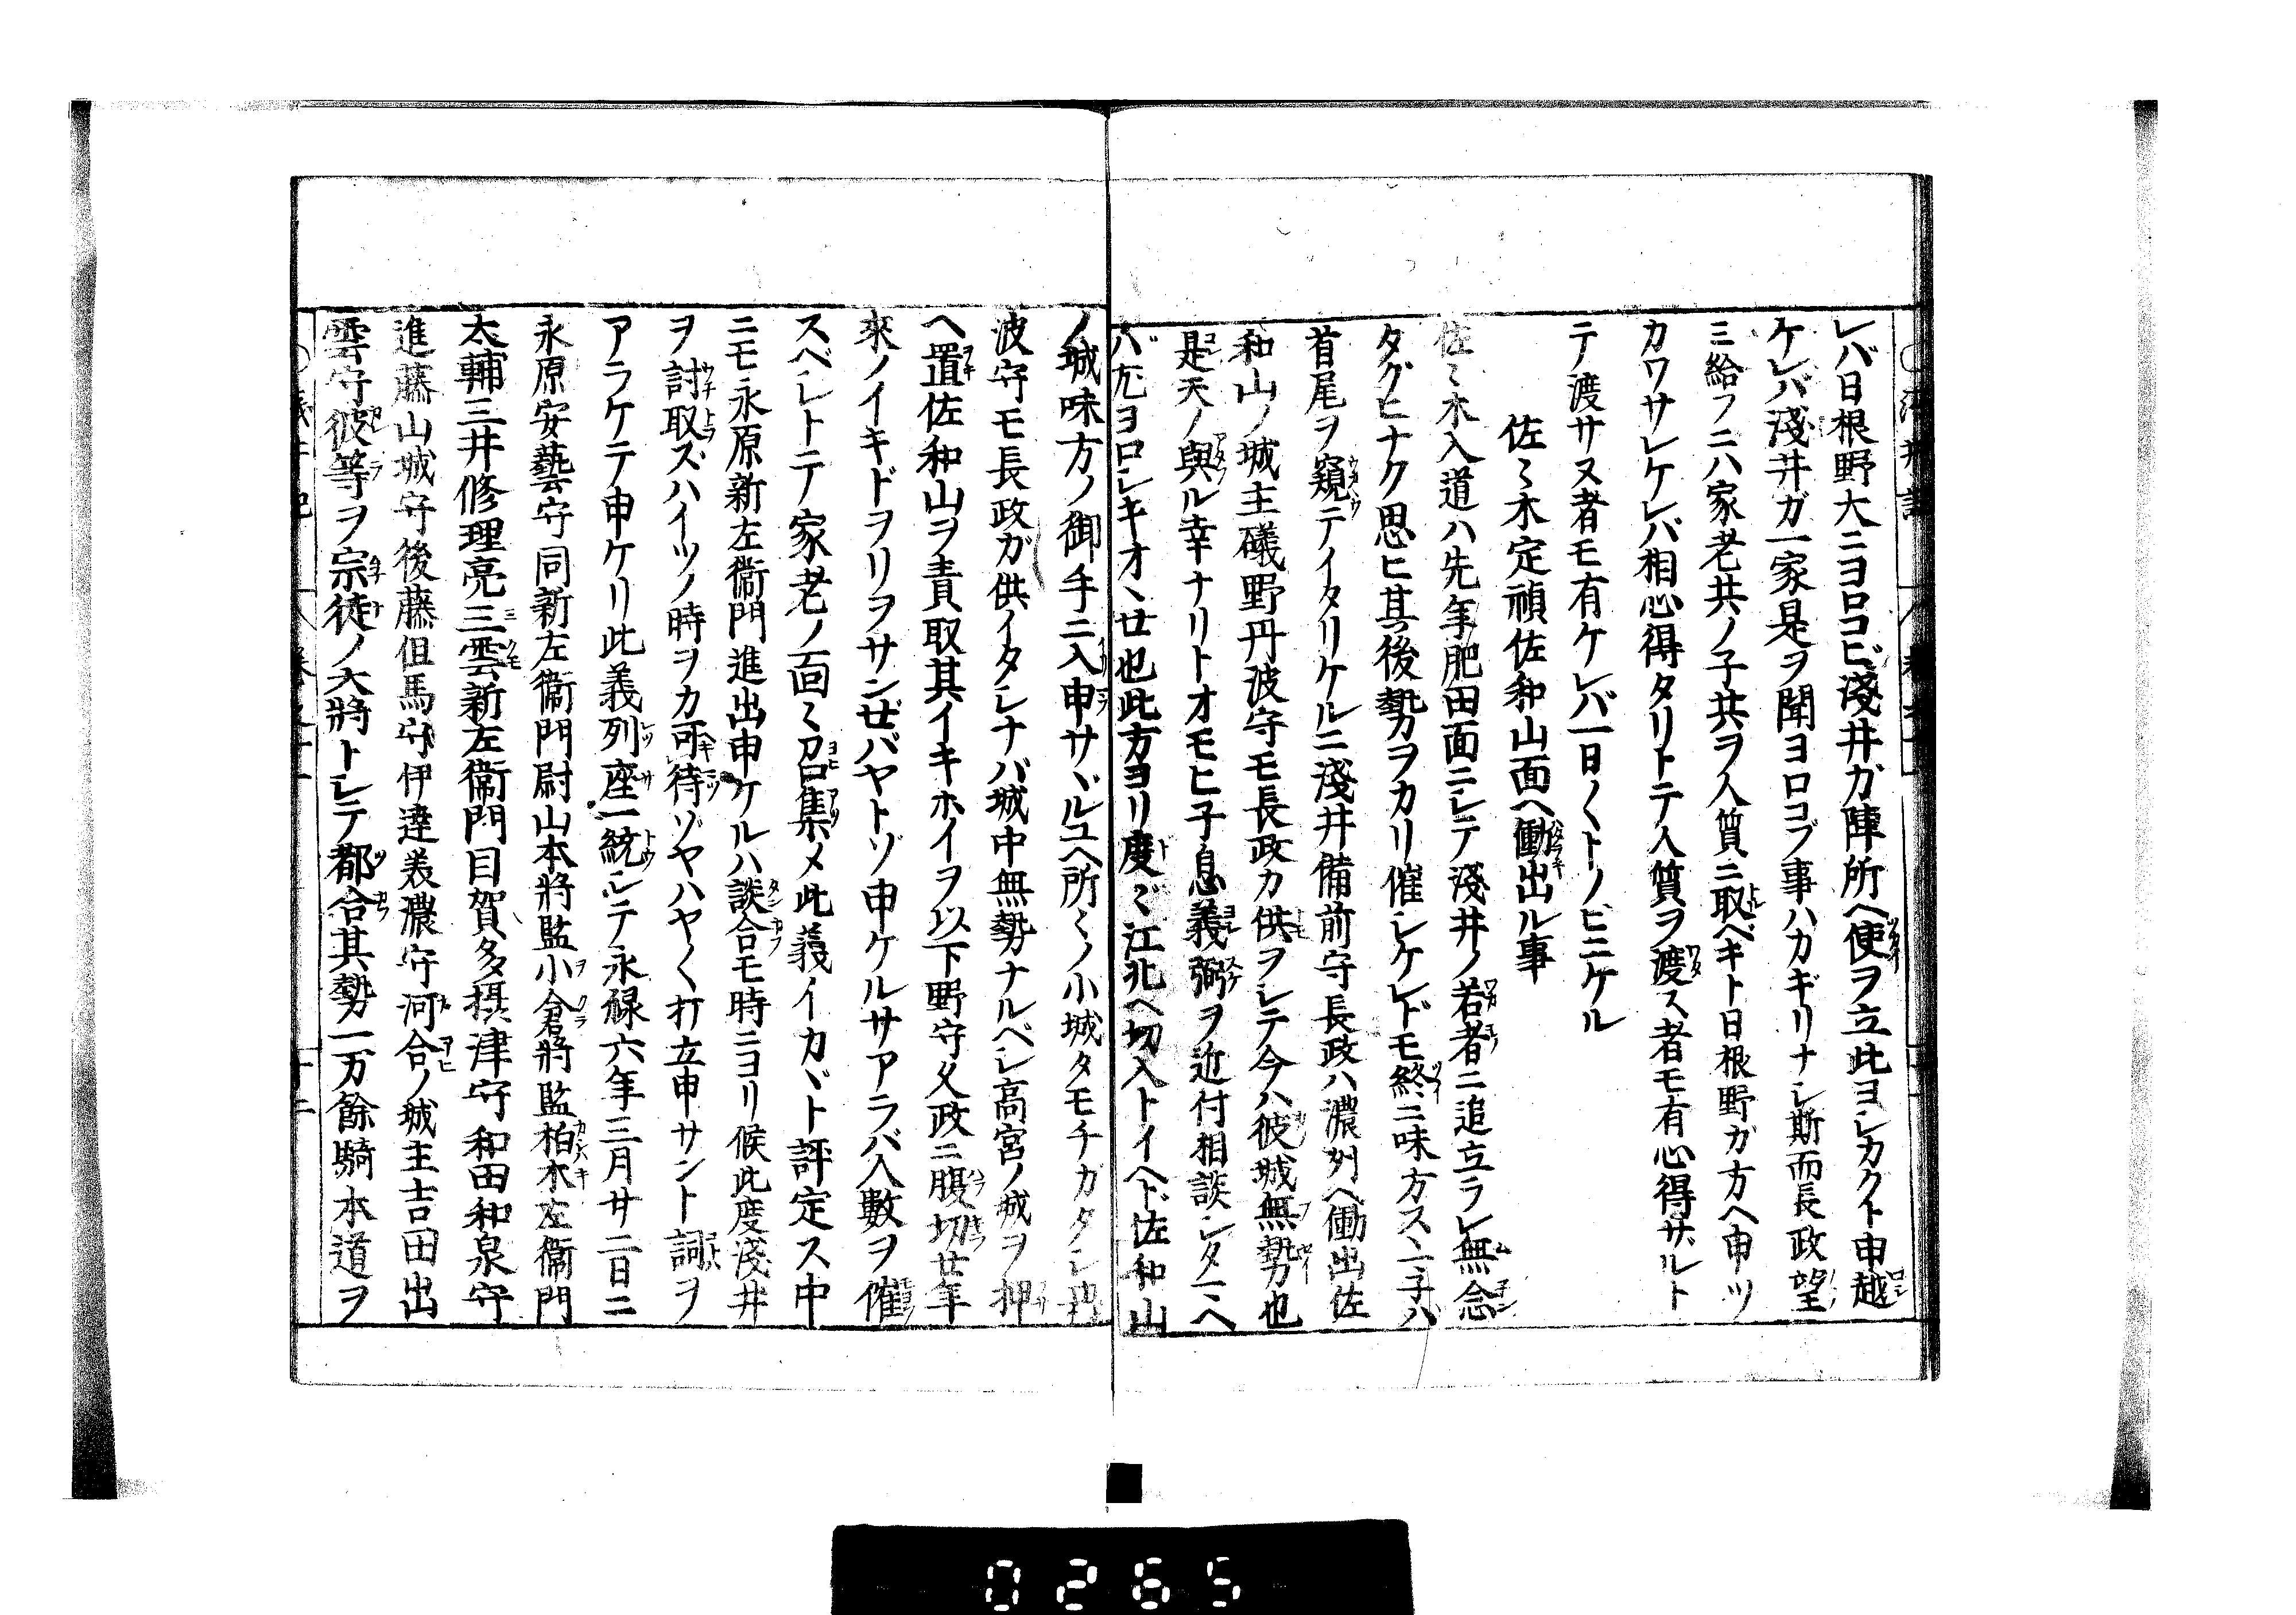 レバ日根野大ニヨロコビ淺井ガ陣所ヘ使ヲ立此ヨシカクト申越
ケレバ淺井ガ一家是ヲ聞ヨロコブ事ハカギリナシ斯而長政望
ミ給フニハ家老共ノ子共ヲ人質ニ取ベキト日根野ガ方ヘ申ツ
カワサレケレバ相心得タリトテ人質ヲ渡ス者モ有心得サルト
テ渡サヌ者モ有ケレバ一日〱トノビニケル
佐〻木定禎佐和山面ヘ働出ル事
佐〻木入道ハ先年肥田面ニシテ淺井ノ若者ニ追立ラレ無念
タグヒナク思ヒ其後勢ヲカリ催シケレドモ終ニ味方ス
首尾ヲ窺テイタリケルニ淺井備前守長政ハ濃列ヘ働出佐
和山ノ城主礒野丹波守モ長政カ供ヲシテ今ハ彼城無勢也
是天ノ與ル幸ナリトオモヒ子息義弼ヲ近付相談シタマヘ
バ尤ヨロシキオヽセ也此方ヨリ度〻江北ヘ切入トイヘド佐和山
ノ城味方ノ御手ニ入申サヾルユヘ所〻ノ小城タモチガタシ
波守モ長政ガ供イタシナバ城中無勢ナルベシ高宮ノ城ヲ押
ヘ置佐和山ヲ責取其イキホイヲ以下野守久政ニ腹切セ年
來ノイキドヲリヲサンゼバヤトゾ申ケルサアラバ人數ヲ催
スベシトテ家老ノ面〻召集メ此義イカヾト評定ス中
ニモ永原新左衞門進出申ケルハ談合モ時ニヨリ候此度淺井
ヲ討取ズハイツノ時ヲカ可待ゾヤハヤ〱打立申サント詞ヲ
アラケテ申ケリ此義列座一統シテ永禄六年三月廿二日ニ
永原安藝守同新左衞門尉山本將監小倉將監柏木左衞門
太輔三井修理亮三雲新左衞門目賀多摂津守和田和泉守
進藤山城守後藤但馬守伊達美濃守河合ノ城主吉田出
雲守彼等ヲ宗徒ノ大將トシテ都合其勢一万餘騎本道ヲ
0265